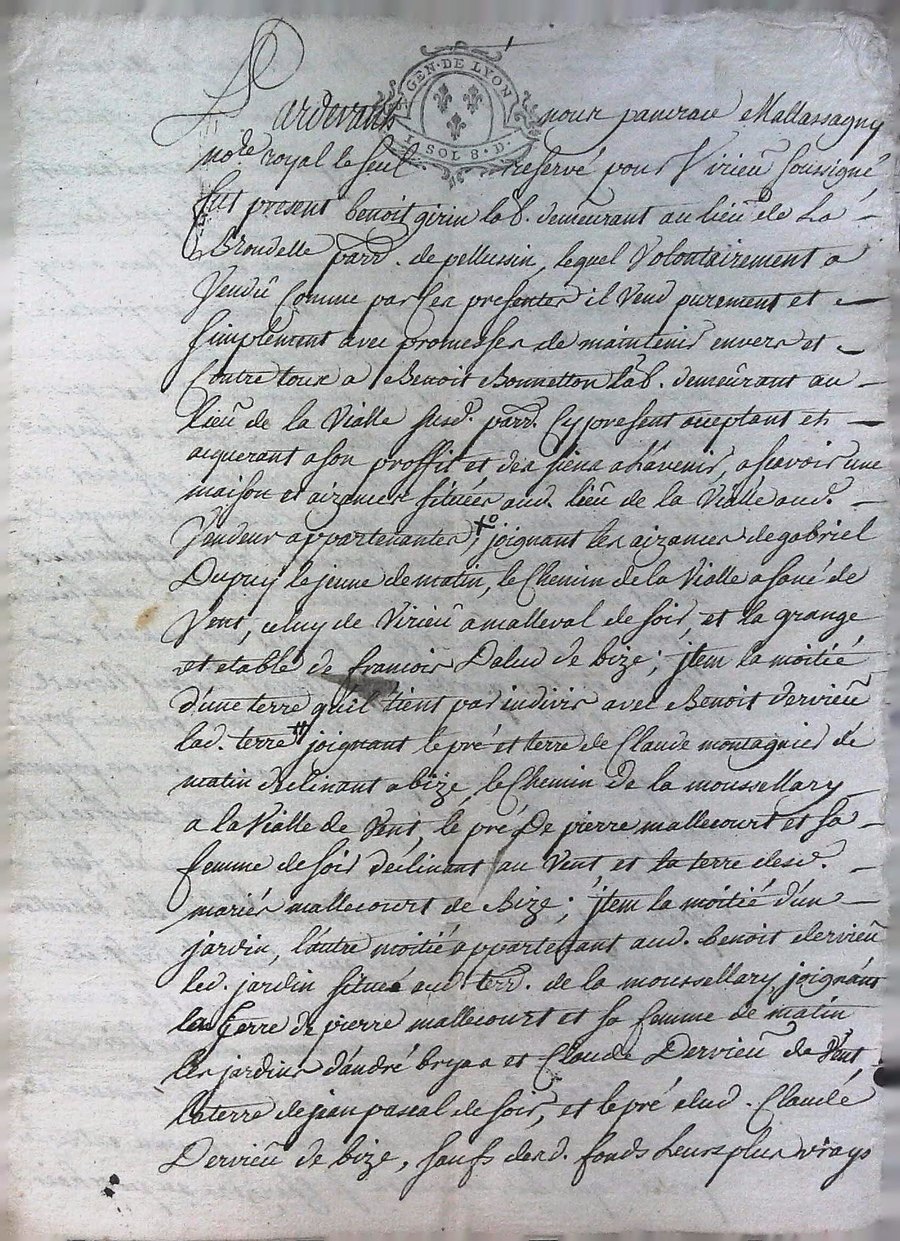 GEN. DE LYON
SOL 8. D.
Pardevant nous pancrace Mallassagny
no.re royal le seul reservé pour Virieû soussigné
fut présent benoit girin lab. demeûrant au lieû de La
Brondelle parr. de pellussin, lequel Volontairement a
Vendû Comme par Ces presentes il Vend purement et
simplement avec promesses de maintenir envers et
Contre tous a Benoit Bonnetton lab. demeûrant au
lieû de la Vialle susd. parr. Cy present aceptant et
acquerant a son proffit et des siens a l'avenir, a scavoir une
maison et aizances situées aud. lieû de la Vialle aud.
Vendeur appartenantes, joignant les aizances de gabriel
Dupuy le jeune de matin, le Chemin de la Vialle a de
Vent, celuy de Virieû a malleval de soir, et la grange
et etable de francois Dalud de bize; jtem la moitié
d'une terre qu'il tient par indivis avec Benoit dervieû
lad. terre joignant le pré et terre de Claude montagnier de
matin declinant a bize, le Chemin de la moussellary
a la Vialle de Vent le pré De pierre mallecourt et sa
femme de soir déclinant au Vent, et la terre desd.
mariés mallecourt de Bize; jtem la moitié d'un
jardin, l'autre moitié appartenant aud. benoit dervieû
led. jardin située aud. terr. de la moussellary, joignant
la terre de pierre mallecourt et sa femme de matin
les jardins d'andré et Claude Dervieû de Vent,
la terre de jean pascal de soir, et le pré dud. Claude
Dervieû de bize, saufs desd. fonds leurs plus vrays